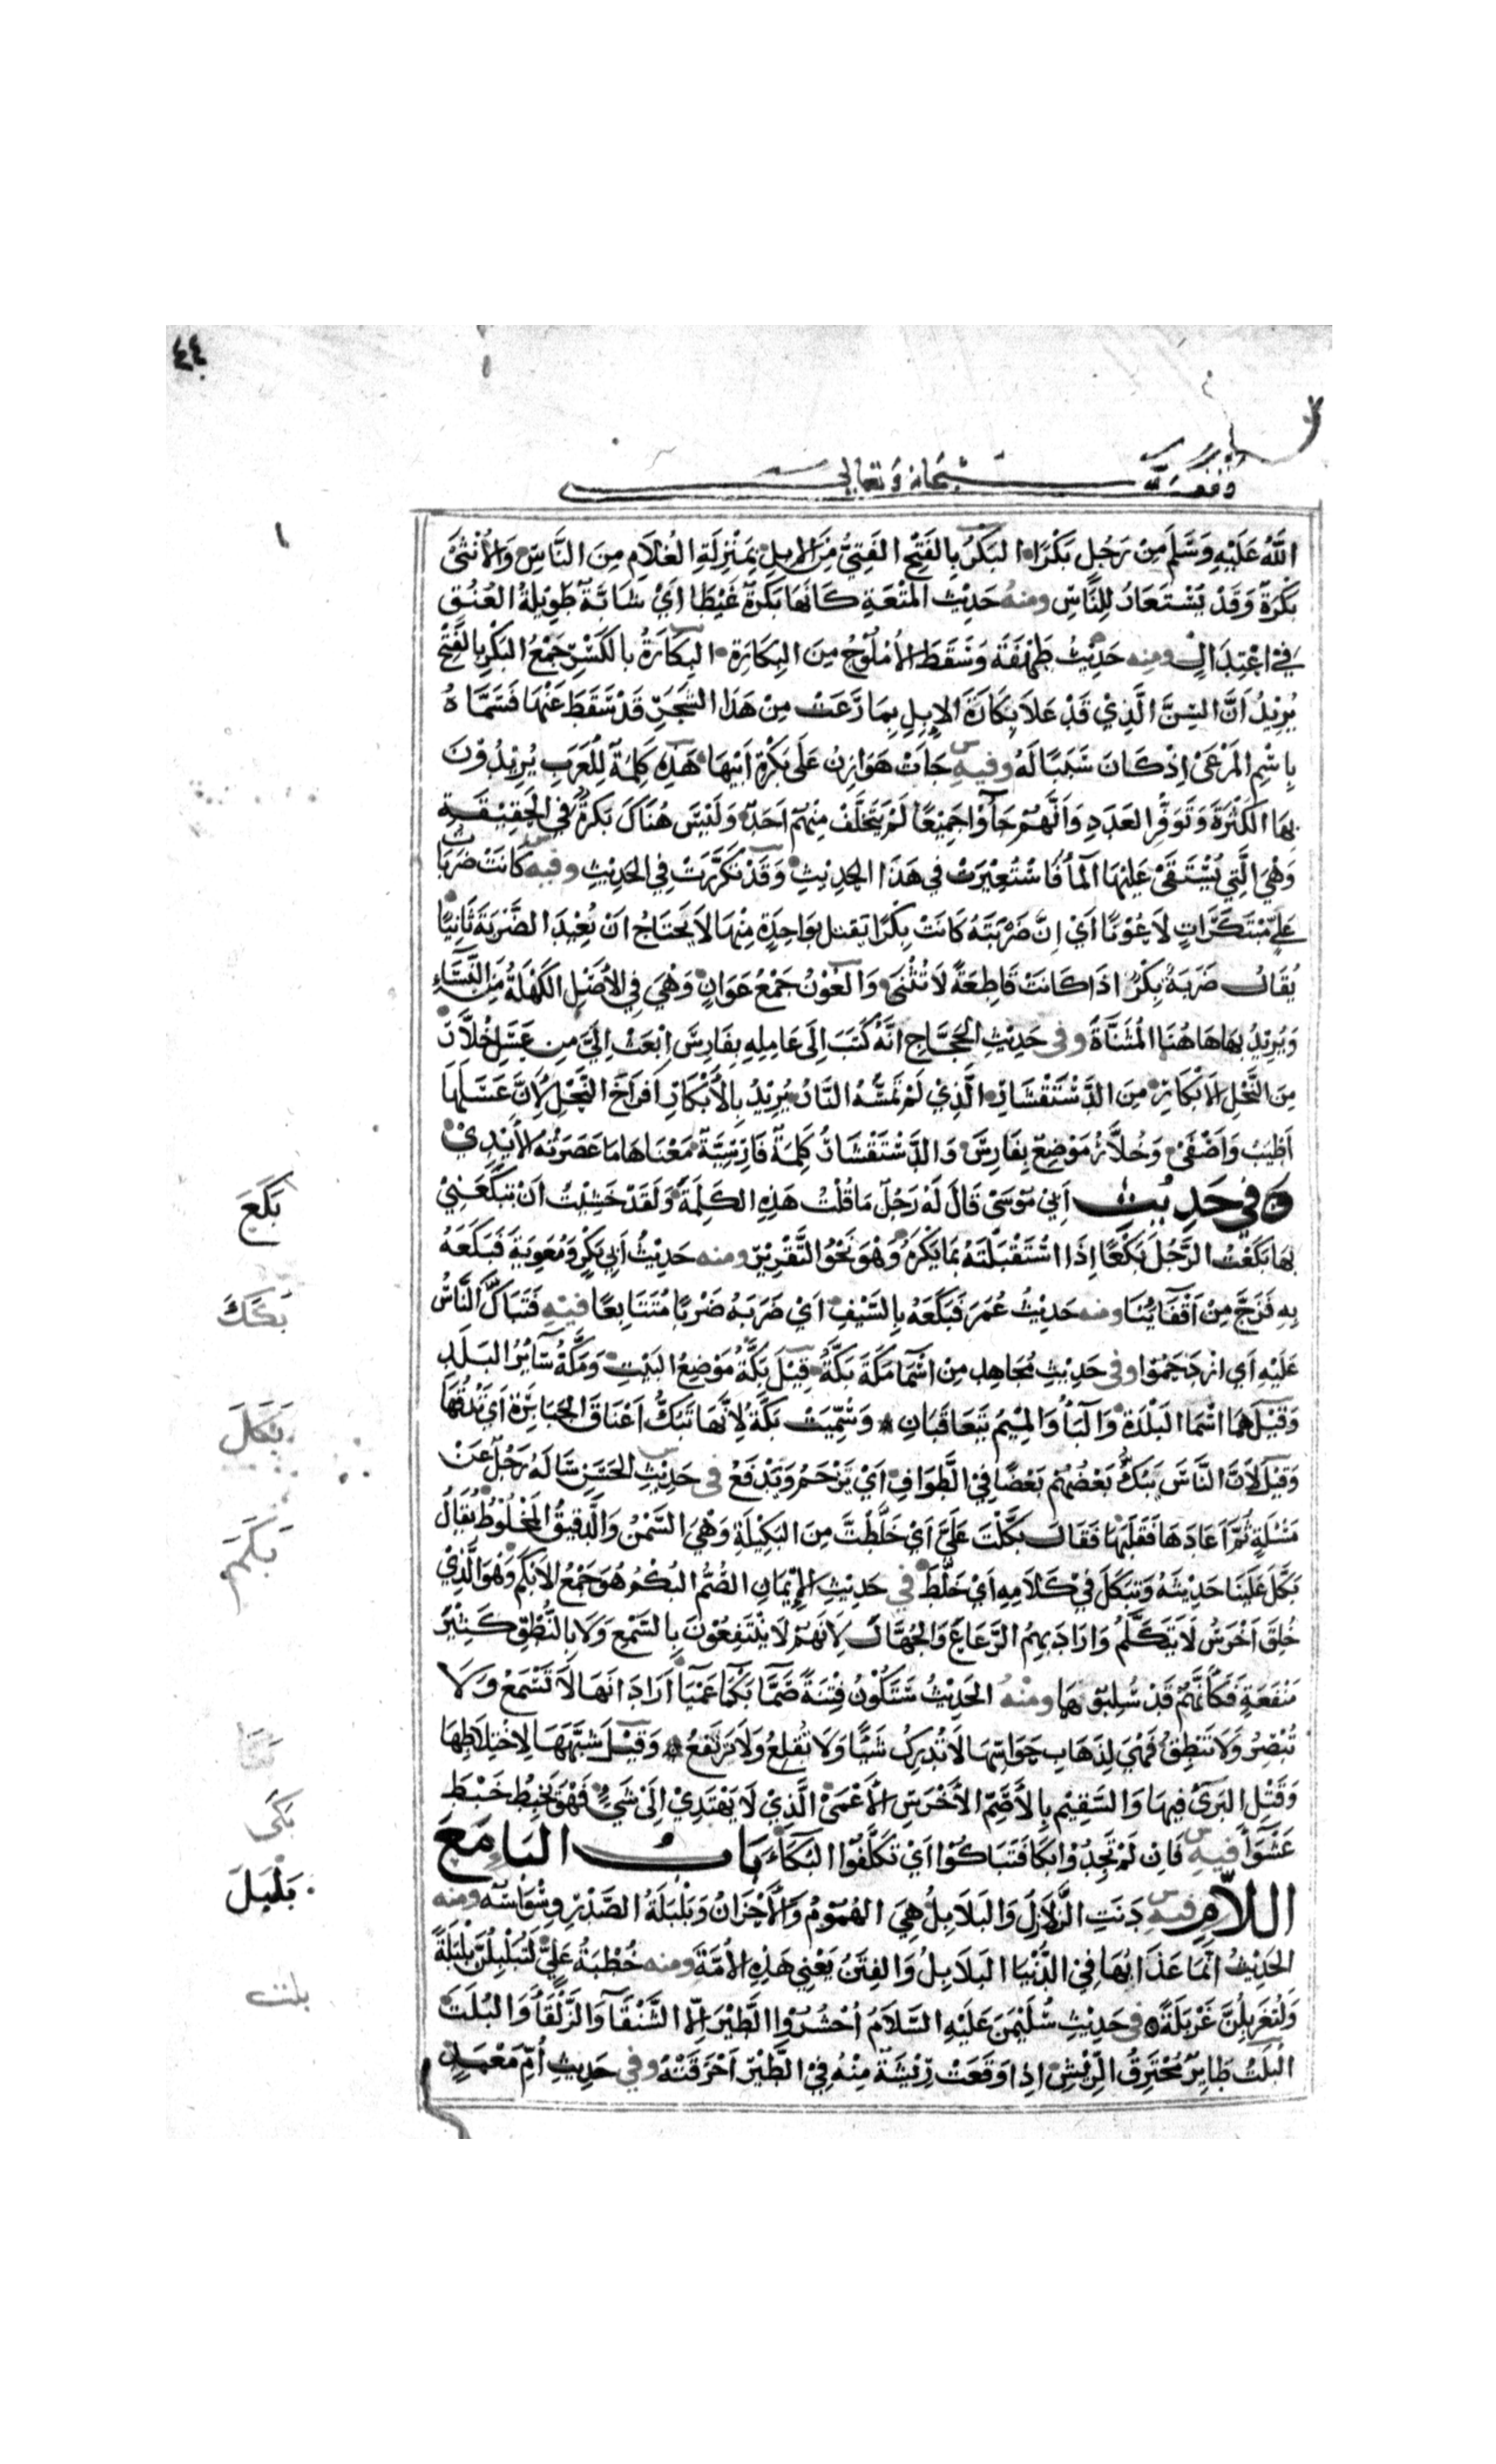 ٤٤
وقف لله سبحانه وتعالى
اللَّهُ عَلَيْهِ وَسَلَّمَ مِنْ رَجُلٍ بَكْرًا البَكْرُ بِالفَتْحِ الفَتِيُّ مِنَ الإبِلِ بِمَنْزِلَةِ الغُلَامِ مِنَ النَّاسِ وَالأُنْثَى
بَكْرَةٌ وَقَدْ يُسْتَعَارُ لِلنَّاسِ ومنهُ حَدِيْثُ المُتْعَةِ كَأَنَّهَا بَكْرَةٌ عَيْطَا أَيْ شَابَّةٌ طَوِيْلَةُ العُنُقِ
فِي اعْتِدَالٍ ومنه حَدِيْثُ طَهْفَةَ وَسَقَطَ الأُمْلُوْجُ مِنَ البِكَارَةِ البِكَارَةُ بِالكَسْرِ جَمْعُ البَكْرِ بِالفَتْحِ
يُرِيْدُ أَنَّ السِّمَنَ الَّذِي قَدْ عَلَا بِكَارَةَ الإبِلِ بِمَا رَعَتْ مِنْ هَذَا الشَّجَرِ قَدْ سَقَطَ عَنْهَا فَسَمَّاهُ
بِاسْمِ المَرْعَى إِذْ كَانَ سَبَبًا لَهُ وفيهِ جَاءَتْ هَوَازِنُ عَلَى بَكْرَةِ أَبِيْهَا هَذِهِ كَلِمَةٌ لِلْعَرَبِ يُرِيْدُوْنَ
بِهَا الكَثْرَةَ وَتَوَفُّرَ العَدَدِ وَأَنَّهُمْ جَاؤُا جَمِيْعًا لَمْ يَتَخَلَّفْ مِنْهُمْ أَحَدٌ وَلَيْسَ هُنَاكَ بَكْرَةٌ فِي الحَقِيْقَةِ
وَهْيَ الَّتِي يُسْتَقَى عَلَيْهَا المَآءُ فَاسْتُعِيْرَتْ فِي هَذَا الحَدِيْثِ وَقَدْ تَكَرَّرَتْ فِي الحَدِيْثِ وفيه كَانَتْ ضَرَبَاتُ
عَلِيٍّ مُبْتَكَرَاتٍ لَا عُوْنًا أَيْ إِنَّ ضَرْبَتَهُ كَانَتْ بِكْرًا يَقْتُلُ بِوَاحِدَةٍ مِنْهَا لَا يَحْتَاجُ أَنْ يُعِيْدَ الضَّرْبَةَ ثَانِيًا
يُقَالُ ضَرْبَةٌ بِكْرٌ إِذَا كَانَتْ قَاطِعَةً لَا تُثْنَى وَالعُوْنُ جَمْعُ عَوَانٍ وَهْيَ فِي الأَصْلِ الكَهْلَةُ مِنَ النِّسَاءِ
وَيُرِيْدُ بِهَا هَاهُنَا المُثَنَّاةَ وفي حَدِيْثِ الحَجَّاجِ أَنَّهُ كَتَبَ إِلَى عَامِلِهِ بِفَارِسَ ابْعَثْ إِلَيَّ مِنْ عَسَلِ خُلَّارَ
مِنَ النَّحْلِ الأَبْكَارِ مِنَ الدَّسْتَفْشَارِ الَّذِيْ لَمْ تَمَسَّهُ النَّارُ يُرِيْدُ بِالأَبْكَارِ أَفْرَاخَ النَّحْلِ لِأَنَّ عَسَلَهَا
أَطْيَبُ وَأَصْفَى وَخُلَّارُ مَوْضِعٌ بِفَارِسَ وَالدَّسْتَفْشَارُ كَلِمَةٌ فَارِسِيَّةٌ مَعْنَاهَا مَا عَصَرَتْهُ الأَيْدِي
وَفي حَدِيْثِ أَبِيْ مُوْسَى قَالَ لَهُ رَجُلٌ مَا قُلْتُ هَذِهِ الكَلِمَةَ وَلَقَدْ خَشِيْتُ أَنْ تَبْكَعَنِيْ
بِهَا بَكَعْتُ الرَّجُلَ بَكْعًا إِذَا اسْتَقْبَلْتَهُ بِمَا يَكْرَهُ وَهْوَ نَحْوُ التَّقْرِيْعِ ومنه حَدِيْثُ أَبِيْ بَكْرَةَ وَمُعَوِيَةَ فَبَكَعَهُ
بِهِ فَزَخَّ مِنْ أَقْفَائِنَا ومنه حَدِيْثُ عُمَرَ فَبَكَعَهُ بِالسَّيْفِ أَيْ ضَرَبَهُ ضَرْبًا مُتَتَابِعًا فيْهِ فَتَبَاكَّ النَّاسُ
عَلَيْهِ أَي ازْدَحَمُوْا وفي حَدِيْثِ مُجَاهِدٍ مِنْ أَسْمَاءِ مَكَّةَ بَكَّةُ قِيْلَ بَكَّةُ مَوْضِعُ البَيْتِ وَمَكَّةُ سَائِرُ البَلَدِ
وَقِيْلَ هُمَا اسْمَا البَلْدَةِ وَالبَآءُ وَالمِيْمُ يَتَعَاقَبَانِ وَسُمِّيَتْ بَكَّةَ لِأَنَّهَا تَبُكُّ أَعْنَاقَ الجَبَابِرَةِ أَيْ تَدُقُّهَا
وَقِيْلَ لِأَنَّ النَّاسَ يَبُكُّ بَعْضُهُمْ بَعْضًا فِي الطَّوَافِ أَيْ يَزْحَمُ وَيَدْفَعُ في حَدِيْثِ الحَسَنِ سَأَلَهُ رَجُلٌ عَنْ
مَسْئَلَةٍ ثُمَّ أَعَادَهَا فَقَلَبَهَا فَقَالَ بَكَّلْتَ عَلَيَّ أَيْ خَلَّطْتَ مِنَ البَكِيْلَةِ وَهْيَ السَّمْنُ وَالدَّقِيْقُ المَخْلُوْطُ يُقَالُ
بَكَّلَ عَلَيْنَا حَدِيْثَهُ وَتَبَكَّلَ فِيْ كَلَامِهِ أَيْ خَلَّطَ في حَدِيْثِ الإِيْمَانِ الصُّمُّ البُكْمُ هُوَ جَمْعُ الأَبْكَمِ وَهْوَ الَّذِيْ
خُلِقَ أَخْرَسُ لَا يَتَكَلَّمُ وَأَرَادَ بِهِمُ الرَّعَاعَ وَالجُهَّالَ لِأَنَّهُمْ لَا يَنْتَفِعُوْنَ بِالسَّمْعِ وَلَا بِالنُّطْقِ كَثِيْرَ
مَنْفَعَةٍ فَكَأَنَّهُمْ قَدْ سُلِبُوْهَا ومنْهُ الحَدِيْثُ سَتَكُوْنُ فِتْنَةٌ صَمَّا بَكْمَا عَمْيَا أَرَادَ أَنَهَا لَا تَسْمَعُ وَلَا
تُبْصِرُ وَلَا تَنْطِقُ فَهْيَ لِذَهَابِ حَوَاسِّهَا لَا تُدْرِكُ شَيْئًا وَلَا تُقْلِعُ وَلَا تَرْتَفِعُ وَقِيْلَ شَبَّهَهَا لِاخْتِلَاطِهَا
وَقَتْلِ البَرِيءِ فِيهَا وَالسَّقِيْمِ بِالأَصَمِّ الأَخْرَسِ الأَعْمَى الَّذِيْ لَا يَهْتَدِيْ إِلَى شَيْءٍ فَهْوَ يَخْبِطُ خَبْطَ
عَشْوَآءَ فيهِ فَإِنْ لَمْ تَجِدُوْا بُكَا فَتَبَاكَوْا أَيْ تَكَلَّفُوْا البُكَآءَ بَابُ البَآءِ مَعَ
اللَّامِ فيه دَنَتِ الزَّلَازِلُ وَالبَلَابِلُ هِيَ الهُمُوْمُ وَالأَحْزَانُ وَبَلْبَلَةُ الصَّدْرِ وِسْوَاسُهُ ومنه
الحَدِيْثُ إِنَّمَا عَذَابُهَا فِي الدُّنْيَا البَلَابِلُ وَالفِتَنُ يَعْنِي هَذِهِ الأُمَّةَ ومنه خُطْبَةُ عَلِيٍّ لَتُبَلْبَلُنَّ بَلْبَلَةً
وَلَتُغَرْبَلُنَّ غَرْبَلَةً في حَدِيْثِ سُلَيْمَنَ عَلَيْهِ السَّلَامُ أُحْشُرُوا الطَّيْرَ إِلَّا الشَّنْقَآءَ وَالرَّنْقَآءَ وَالبُلَتَ
البُلَتُ طَائِرٌ مُحْتَرِقُ الرِّيْشِ إِذَا وَقَعَتْ رِيْشَةٌ مِنْهُ فِي الطَّيْرِ أَحْرَقَتْهُ وفي حَدِيْثِ أُمِّ مَعْبَدٍ
بَكَعَ
بَكَكَ
بَكَلَ
بَكَمَ
بَكَى
بَلْبَلَ
بلت